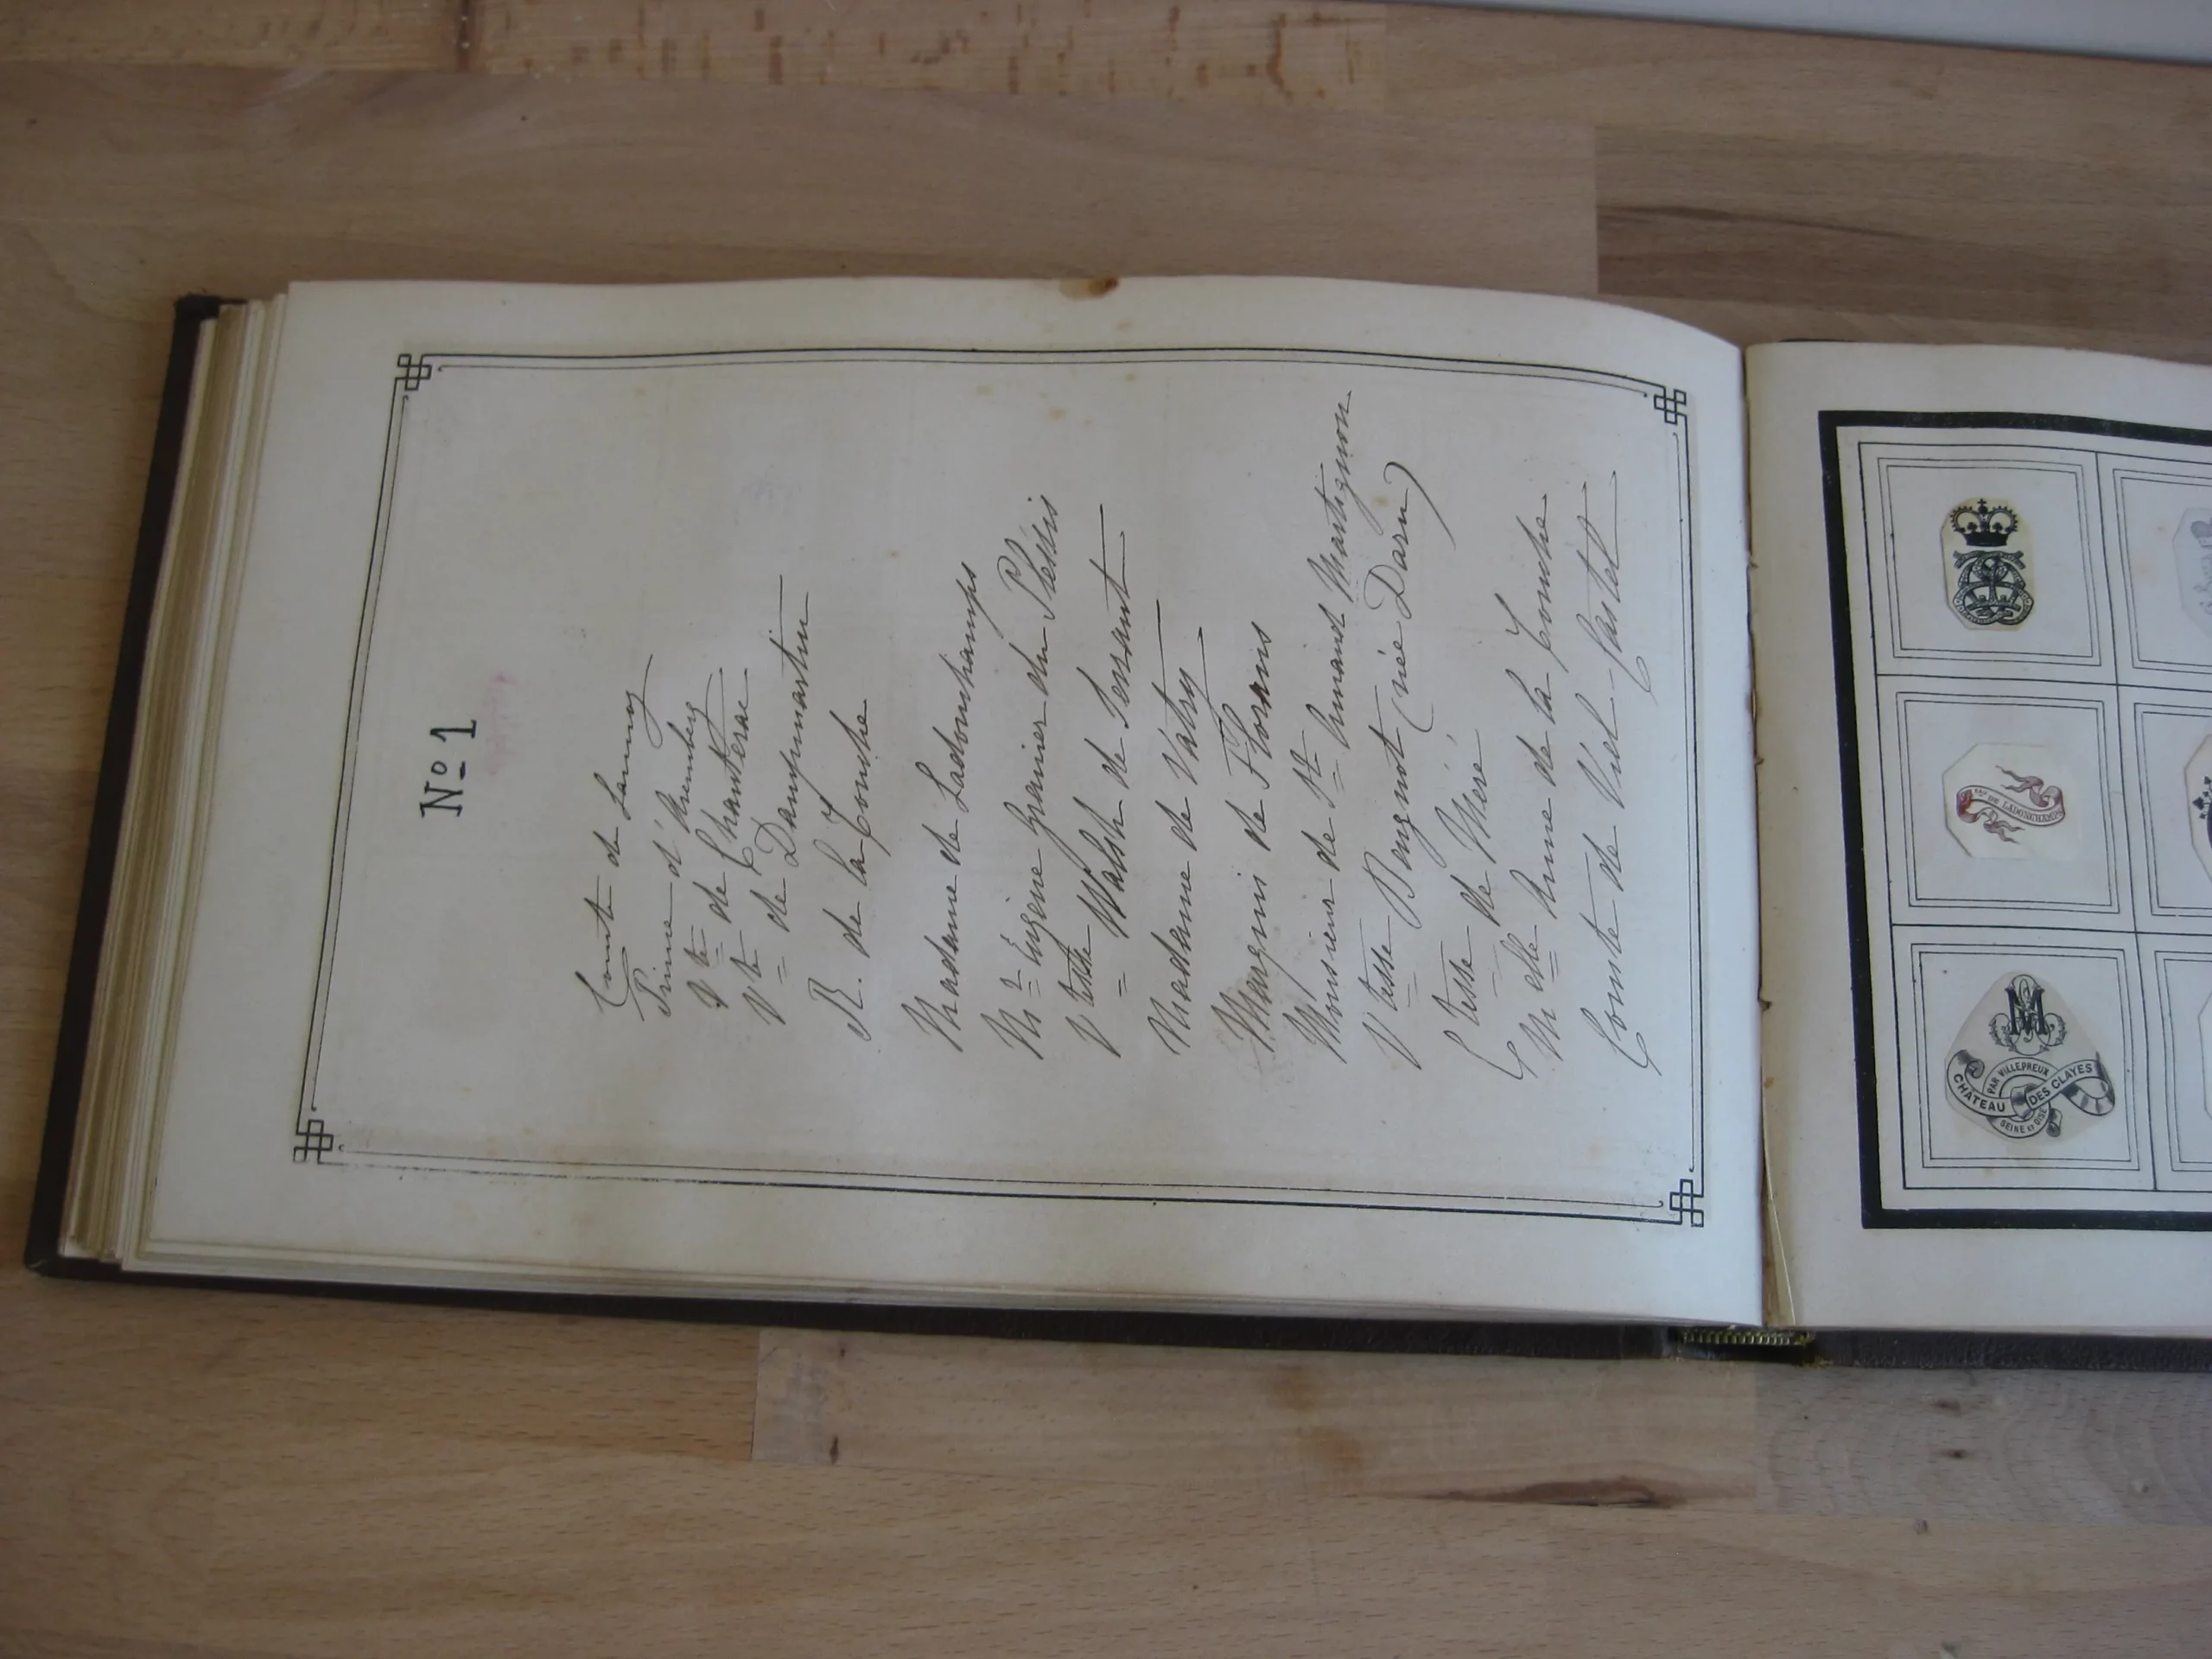 No 1
Comte de Lannoy
Prince d'Aremberg
Vte de Chanterac
Vte de Dampmartin
R. de la Touche
Madame de Ladonchamps
Mr Eugène Granier du Plessis
Vtesse Walsh de Serrant
Madame de Vatry
Marquis de Florans
Monsieur de St Amand Martignon
Vtesse Beugnot (née Daru)
Ctesse de Meré
Melle Anne de la Touche
Comte de Viel-Castel
DE LADONCHAMPS
M
CHATEAU DES CLAYES
PAR VILLEPREUX
SEINE ET OISE